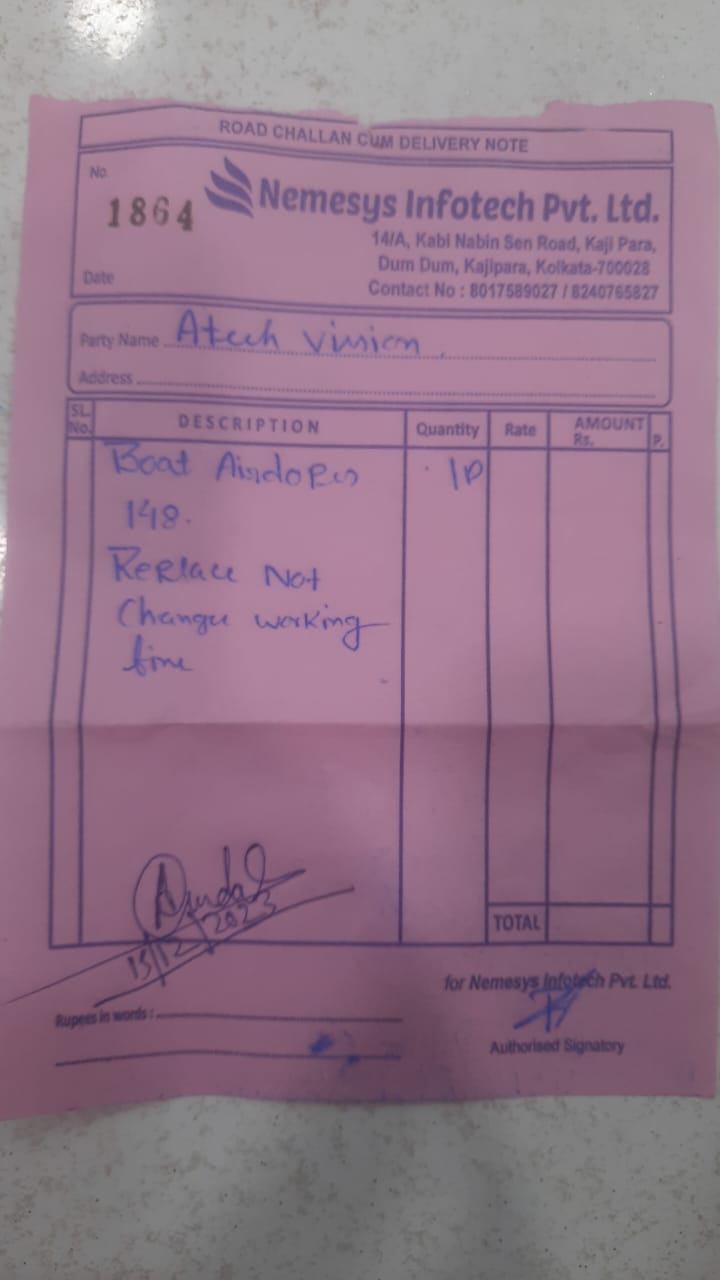 ROAD CHALLAN CUM DELIVERY NOTE
No.
1864
Nemesys Infotech Pvt. Ltd.
14/A, Kabi Nabin Sen Road, Kaji Para,
Dum Dum, Kajipara, Kolkata-700028
Date
Contact No : 8017589027 / 8240765827
Party Name Atech Vission
Address
SL. No. DESCRIPTION Quantity Rate AMOUNT Rs. P.
Boat Airdopes 1P
148.
Replace Not
Change working
time
15/12/2023
TOTAL
for Nemesys Infotech Pvt. Ltd.
Rupees in words :
Authorised Signatory